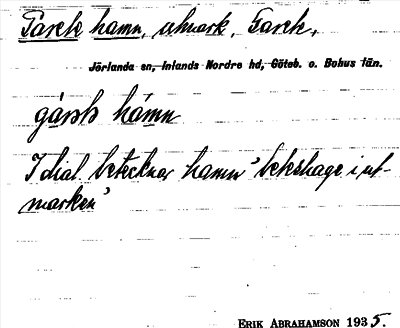 Torsk hamn, utmark, Torsk.
Jörlanda sn, Inlands Nordre hd, Göteb. o. Bohus län.
hámn
I dial. betecknar hamn 'beteshage i ut-
marken'
ERIK ABRAHAMSON 1935.